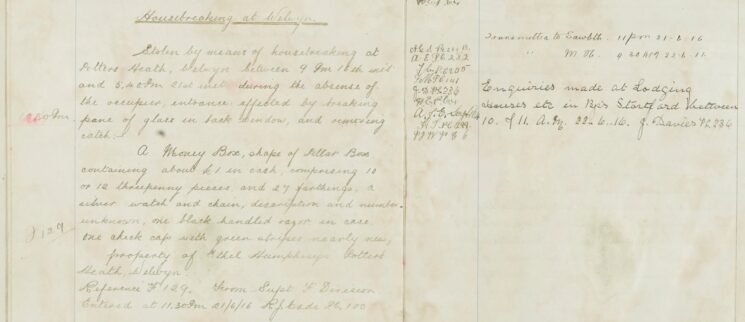 Housebreaking at Welwyn.
Stolen by means of housebreaking at
Potters Heath, Welwyn between 9 Pm 18th inst
and 5.40 Pm 21st inst. during the absence of
the occupier, entrance effected by breaking
pane of glass in back window, and removing
catch:-
A Money Box, shape of Pillar Box
containing about £1 in cash, comprising 10
or 12 threepenny pieces, and 27 farthings, a
silver watch and chain, description and number
unknown, one black handled razor in case,
one check cap with green stripes nearly new,
property of Ethel Humphreys Potters
Heath, Welwyn.
Reference F 129. From Supt F Division
Entered at 11.30 Pm 21/6/16 PC 100
F 129
Transmitted to 11 pm 21-6-16
" M H.
Enquiries made at Lodging
Houses etc in Bp's Stortford between
10 & 11. A.M. 22-6-16. J. Davies PC 236